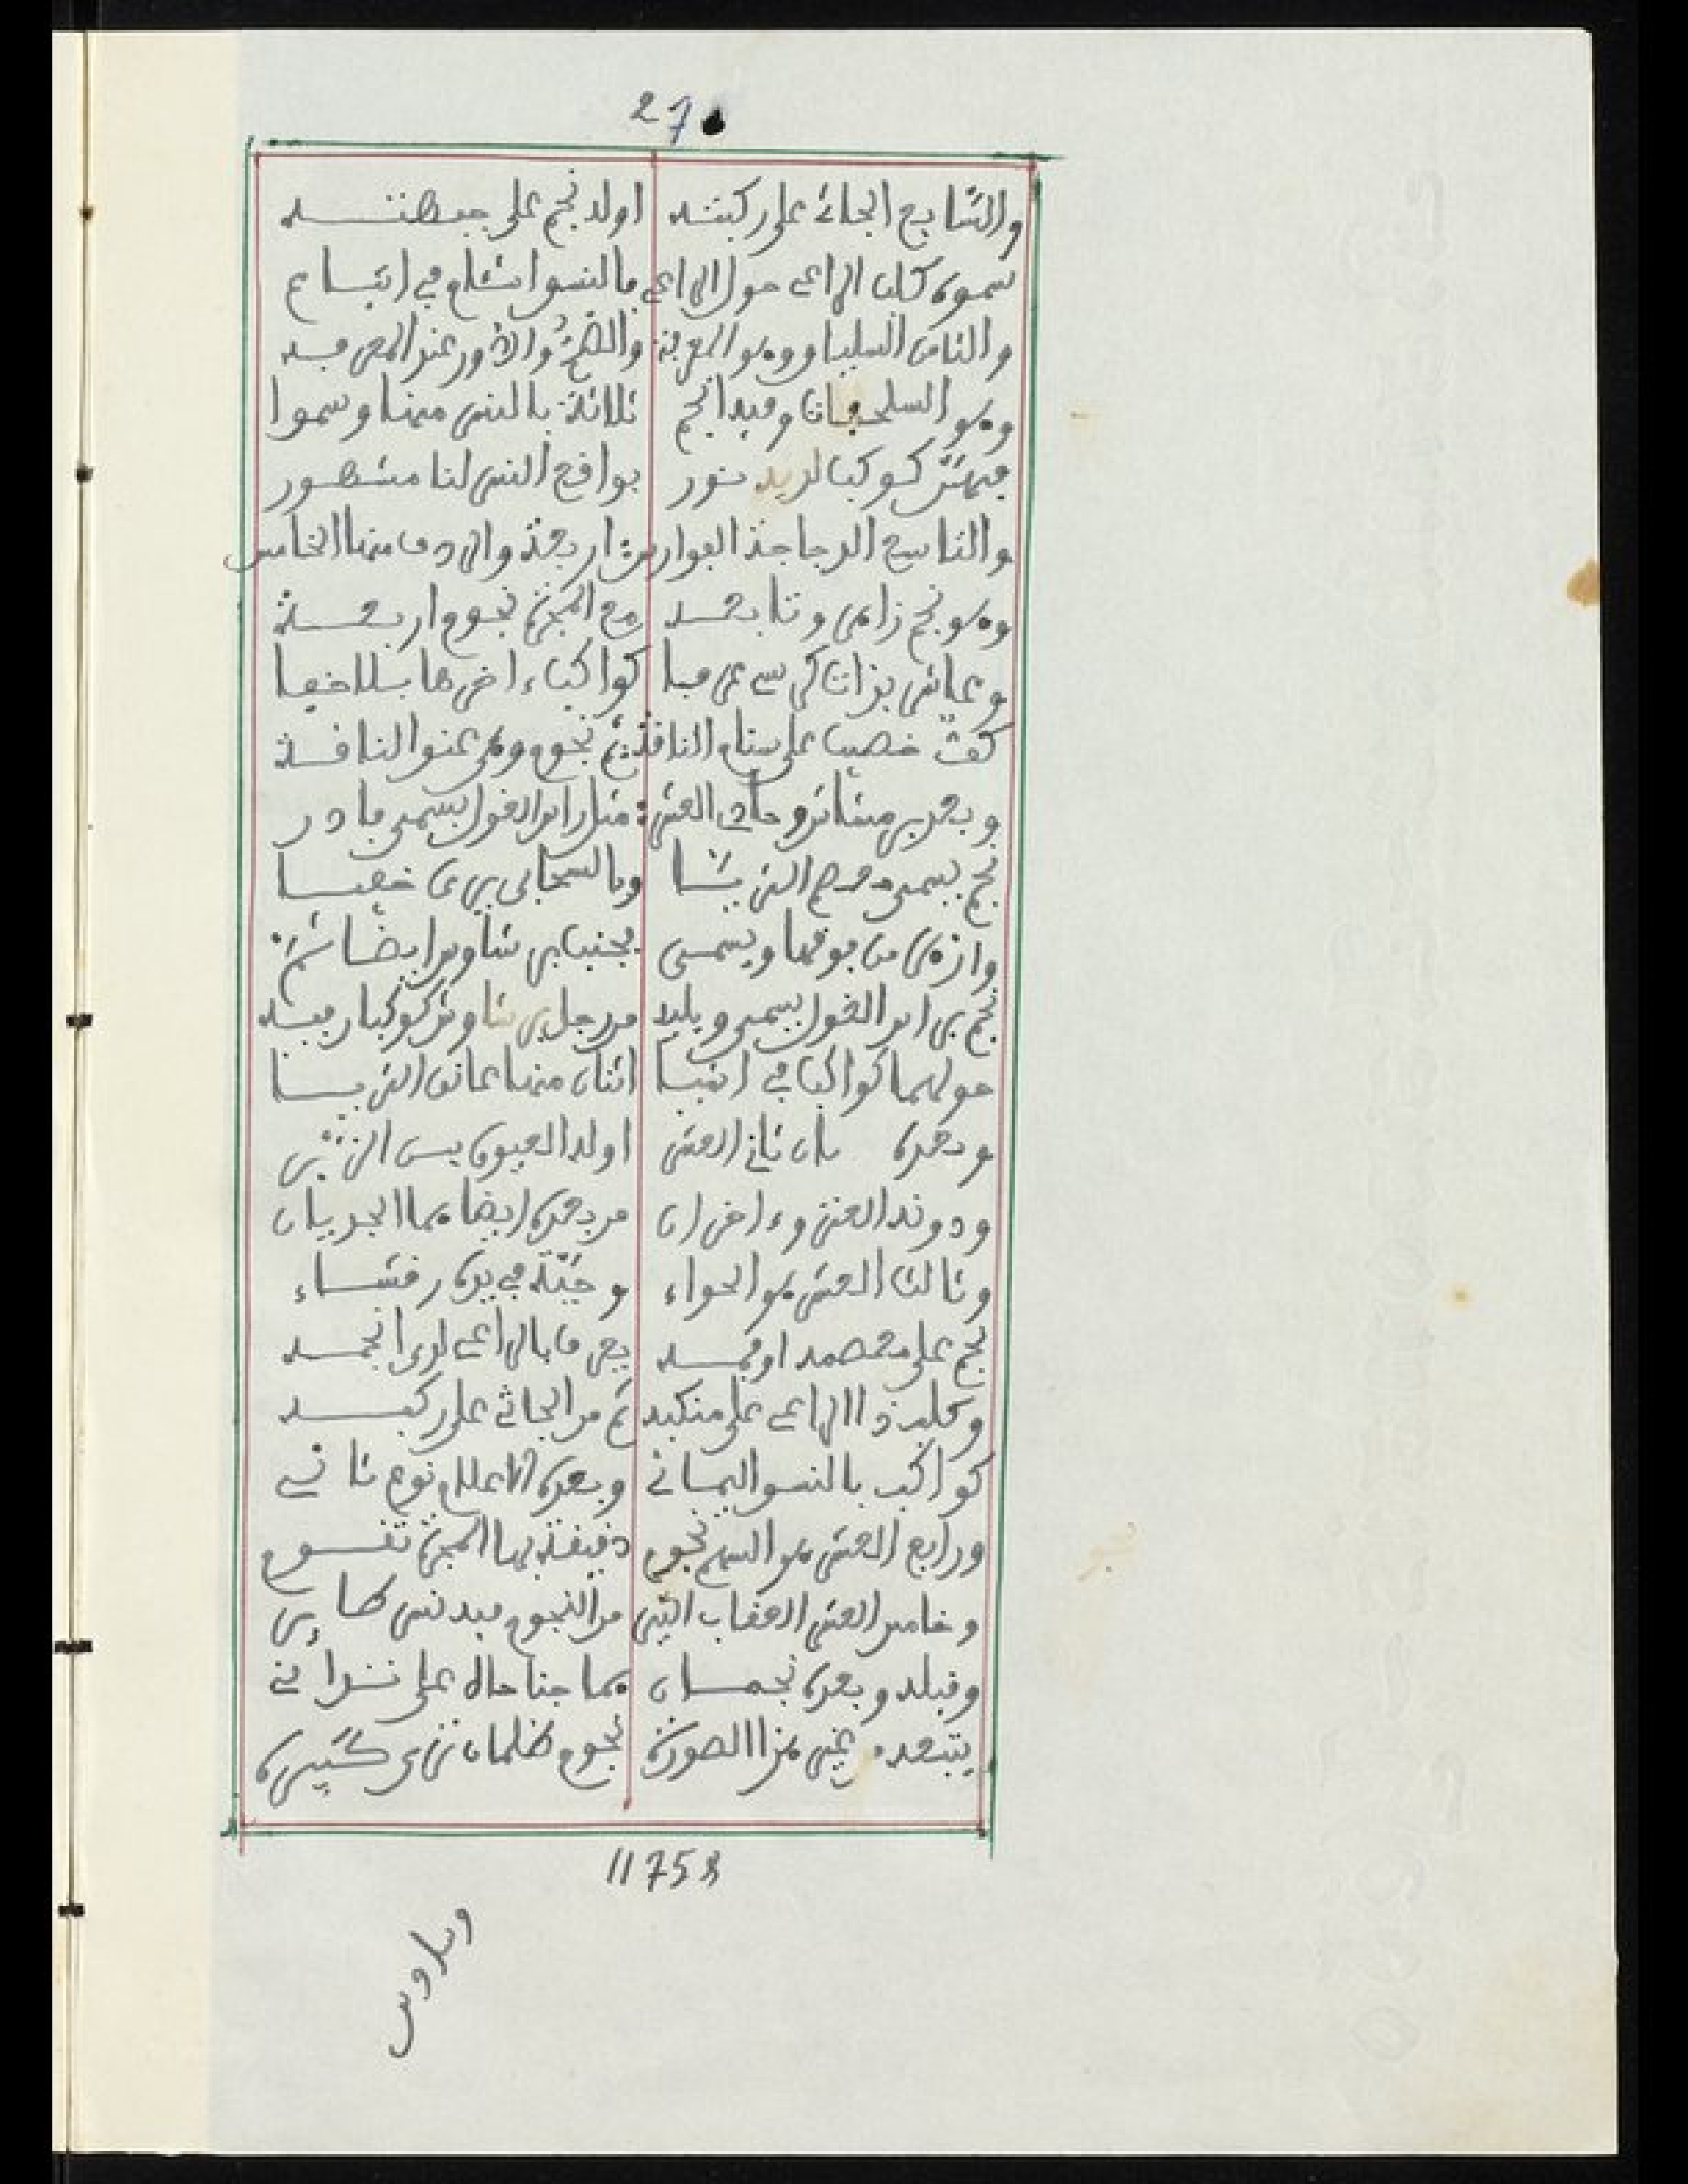 27
والسابع الجاثي على ركبته اوله نجم على جبهته
سموه كلب الراعي حول الراعي بالنسو الشام في اتباع
والثامن السلياو وهو المعزفة والصنج والاوز عند المعرفه
وهو السلحفات وفيه انجم ثلاثة بالنسر منها وسموا
فيه كوكبا لديه نور بواقع النسر لنا مشهور
والتاسع الدجاجة الفوارس اربعة والردف منها الخامس
وهو نجم زاهر وتابعه مع المجرة نجوم اربعة
وعاشر بذات كرسي عرفا كواكباء اخرها بلا خفا
كف خضيب على سنام الناقة ثم نجوم وهي عنق الناقة
وبعد برشاوش حادي العشر مثل راس الغول يسمى بادر
نجم يسمى معصم الثريا وبالسحابي يرى خفيا
وازهر من فوقها ويسمى بجنب برشاوش ايضا ثم
نجم براس الغول يسمى ويليه من رجل برشاوش كوكبا رفيه
حولهما كواكبا في اثنيا اثنان منها عاتق الثريا
وبعده بان ثاني العشر اوله العيوق يسر النير
ودونه العنز وءاخران من بعده ايضا هما الجديان
وثالث العشر هو الحواء وحية في يده رقشاء
نجم على معصمه او فمه يعرف بالراعي لدى انجمه
وكلب ذا الراعي على منكبه ثم من الجاثي على ركبه
كواكب بالنسو اليماني وبعده الاعلام نوع ثاني
ورابع العشر هو السهم نجوم دقيقة بها المجرة تقوم
وخامس العشر العقاب النير من النجوم فيه نسر طائر
وقبله وبعده نجمان هما جناحاه على تداني
يتبعه في هذا الصورة نجوم ظلمان ترى كثيرة
11758
وساوس